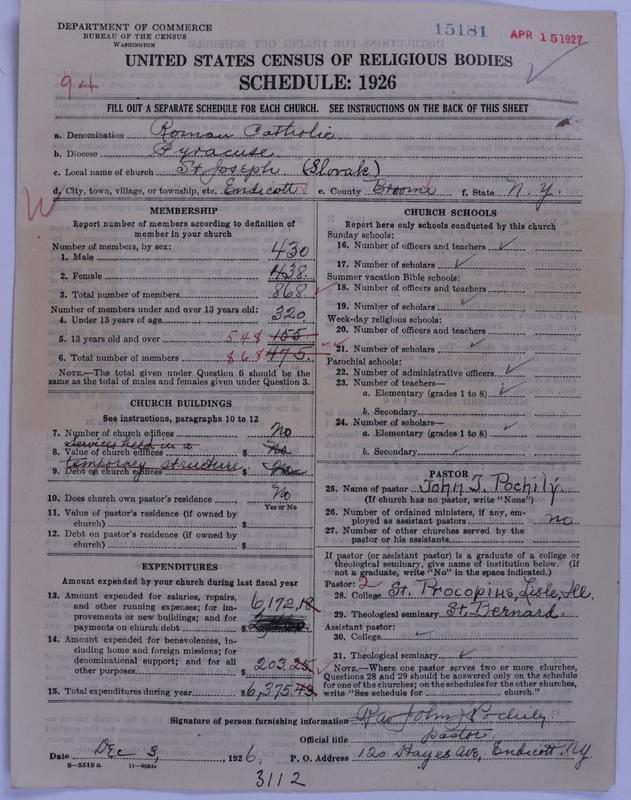 DEPARTMENT OF COMMERCE
BUREAU OF THE CENSUS
WASHINGTON
15181
APR 15 1927
UNITED STATES CENSUS OF RELIGIOUS BODIES
SCHEDULE: 1926
94
FILL OUT A SEPARATE SCHEDULE FOR EACH CHURCH. SEE INSTRUCTIONS ON THE BACK OF THIS SHEET
a. Denomination Roman Catholic
b. Diocese Syracuse
c. Local name of church St Joseph (Slovak)
d. City, town, village, or township, etc. Endicott e. County Broome f. State N. Y.
W
MEMBERSHIP
Report number of members according to definition of member in your church
Number of members, by sex:
1. Male 430
2. Female 438
3. Total number of members 868
Number of members under and over 13 years old:
4. Under 13 years of age 320
5. 13 years old and over 548 155
6. Total number of members 868 475
NOTE.—The total given under Question 6 should be the same as the total of males and females given under Question 3.
CHURCH BUILDINGS
See instructions, paragraphs 10 to 12
7. Number of church edifices No
services held in a
8. Value of church edifices $ No
temporary structure
9. Debt on church edifices $ No
10. Does church own pastor's residence No
Yes or No
11. Value of pastor's residence (if owned by church) $
12. Debt on pastor's residence (if owned by church) $
EXPENDITURES
Amount expended by your church during last fiscal year
13. Amount expended for salaries, repairs, and other running expenses; for improvements or new buildings; and for payments on church debt $ 6,172.18
14. Amount expended for benevolences, including home and foreign missions; for denominational support; and for all other purposes $ 203.25
15. Total expenditures during year $ 6,375.43
CHURCH SCHOOLS
Report here only schools conducted by this church
Sunday schools:
16. Number of officers and teachers
17. Number of scholars
Summer vacation Bible schools:
18. Number of officers and teachers
19. Number of scholars
Week-day religious schools:
20. Number of officers and teachers
21. Number of scholars
Parochial schools:
22. Number of administrative officers
23. Number of teachers—
a. Elementary (grades 1 to 8)
b. Secondary
24. Number of scholars—
a. Elementary (grades 1 to 8)
b. Secondary
PASTOR
25. Name of pastor John J. Pochily
(If church has no pastor, write "None")
26. Number of ordained ministers, if any, employed as assistant pastors no
27. Number of other churches served by the pastor or his assistants
If pastor (or assistant pastor) is a graduate of a college or theological seminary, give name of institution below. (If not a graduate, write "No" in the space indicated.)
Pastor: 2
28. College St. Procopius, Lisle, Ill.
29. Theological seminary St. Bernard
Assistant pastor:
30. College
31. Theological seminary
NOTE.—Where one pastor serves two or more churches, Questions 28 and 29 should be answered only on the schedule for one of the churches; on the schedules for the other churches, write "See schedule for church."
Signature of person furnishing information Rev John J Pochily
Official title pastor
Date Dec 3, 1926. P. O. Address 120 Hayes Ave, Endicott. NY
8—5518 a
3112